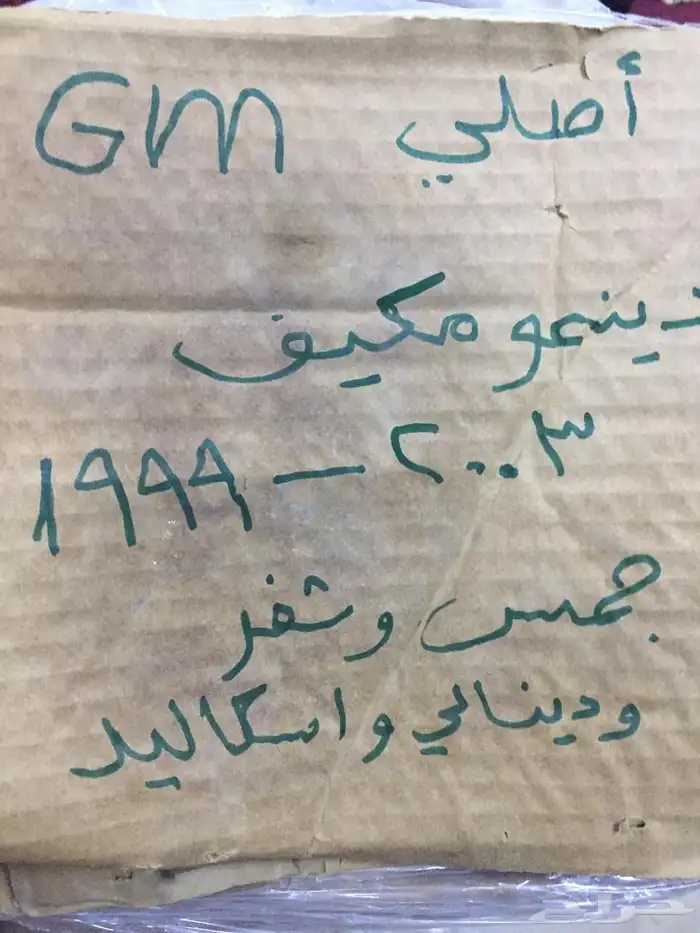 أصلي GM
دينمو مكيف
٢٠٠٣ - ١٩٩٩
جمس وشفر
ودينالي واسكاليد
حراج